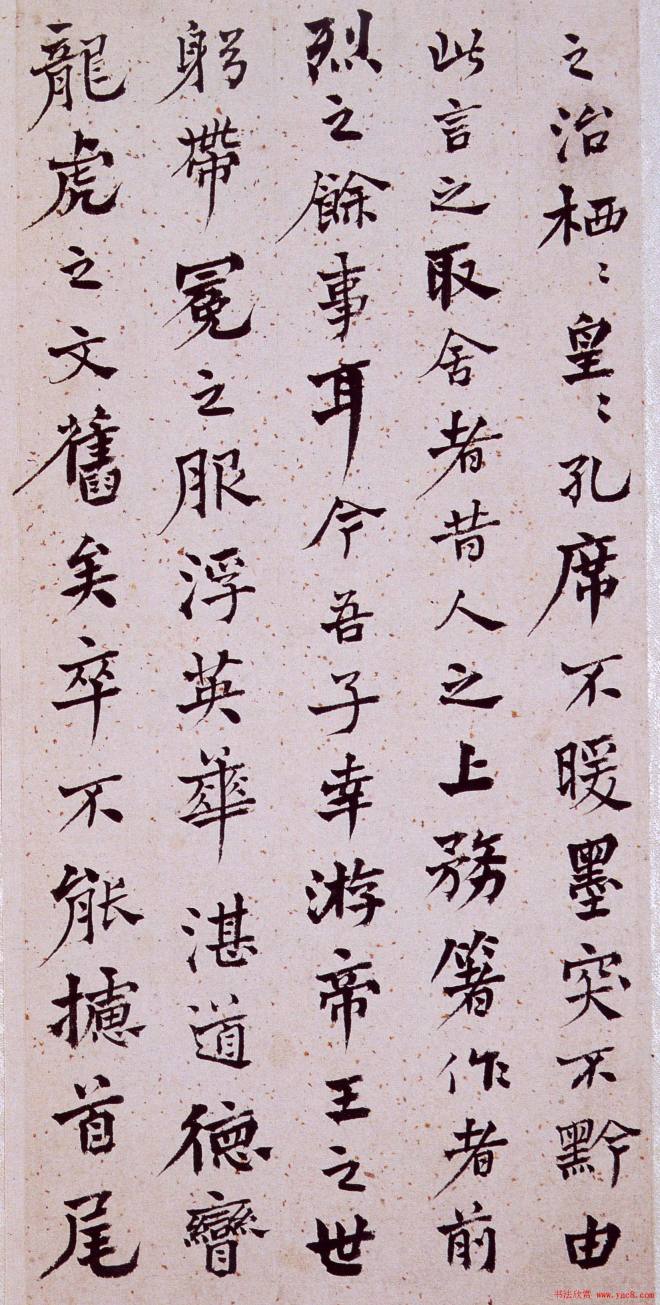 之治栖〻皇〻孔席不暖墨突不黔由
此言之取舍者昔人之上務箸作者前
烈之餘事耳今吾子幸游帝王之世
躬帶冕之服浮英華湛道德矕
龍虎之文舊矣卒不能攄首尾
书法欣赏 www.yac8.com